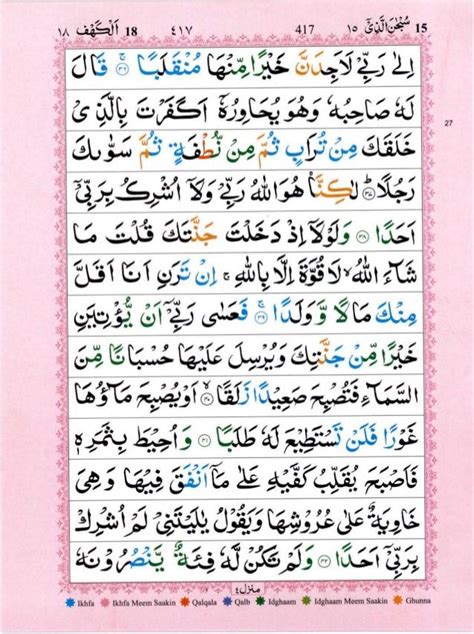 15 سُبْحٰنَ الَّذِىْٓ ١٥ 417 ٤١٧ 18 اَلْكَهْف ١٨
اِلٰى رَبِّىْ لَاَجِدَنَّ خَيْرًا مِّنْهَا مُنْقَلَبًا ۚ ﴿٣٦﴾ قَالَ
لَهٗ صَاحِبُهٗ وَهُوَ يُحَاوِرُهٗۤ اَكَفَرْتَ بِالَّذِىْ
خَلَقَكَ مِنْ تُرَابٍ ثُمَّ مِنْ نُّطْفَةٍ ثُمَّ سَوّٰىكَ
رَجُلًا ؕ ﴿٣٧﴾ لٰكِنَّا۠ هُوَ اللّٰهُ رَبِّىْ وَلَاۤ اُشْرِكُ بِرَبِّىْۤ
اَحَدًا ﴿٣٨﴾ وَلَوْلَاۤ اِذْ دَخَلْتَ جَنَّتَكَ قُلْتَ مَا
شَآءَ اللّٰهُ ۙ لَا قُوَّةَ اِلَّا بِاللّٰهِ ۚ اِنْ تَرَنِ اَنَا اَقَلَّ
مِنْكَ مَالًا وَّوَلَدًا ۚ ﴿٣٩﴾ فَعَسٰى رَبِّىْۤ اَنْ يُّؤْتِيَنِ
خَيْرًا مِّنْ جَنَّتِكَ وَيُرْسِلَ عَلَيْهَا حُسْبَانًا مِّنَ
السَّمَآءِ فَتُصْبِحَ صَعِيْدًا زَلَقًا ۙ ﴿٤٠﴾ اَوْ يُصْبِحَ مَآؤُهَا
غَوْرًا فَلَنْ تَسْتَطِيْعَ لَهٗ طَلَبًا ﴿٤١﴾ وَاُحِيْطَ بِثَمَرِهٖ
فَاَصْبَحَ يُقَلِّبُ كَفَّيْهِ عَلٰى مَاۤ اَنْفَقَ فِيْهَا وَهِىَ
خَاوِيَةٌ عَلٰى عُرُوْشِهَا وَيَقُوْلُ يٰلَيْتَنِىْ لَمْ اُشْرِكْ
بِرَبِّىْۤ اَحَدًا ﴿٤٢﴾ وَلَمْ تَكُنْ لَّهٗ فِئَةٌ يَّنْصُرُوْنَهٗ
27
منزل٤
Ikhfa Ikhfa Meem Saakin Qalqala Qalb Idghaam Idghaam Meem Saakin Ghunna